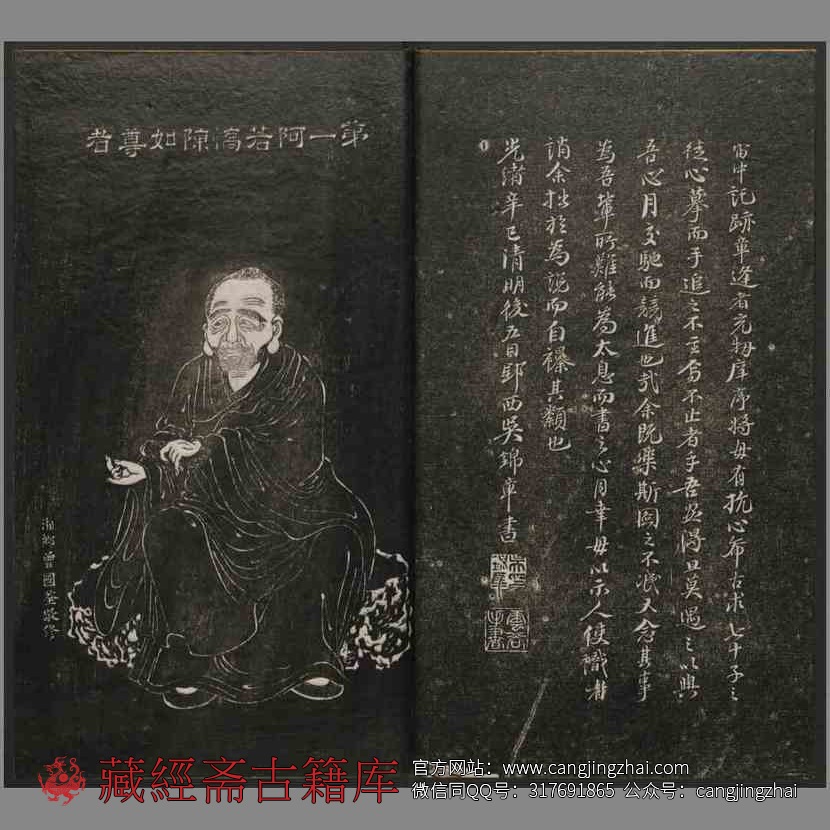 畱中記跡幸逢看完物庠序將毋有抗心希古求七十子之
徒心摹而手追之不至焉不止者乎吾恐漏且莫遏之以與
吾心月交馳而競進也哉余既樂斯圖之不泯又念其事
為吾輩所難能為太息而書之心月幸毋以示人使識者
誚余拙於為說而自襮其纇也
光緒辛巳清明後五日郢西吳錦章書
第一阿若憍陳如尊者
湘鄉曾國荃敬修
藏經斋古籍库
官方网站：www.cangjingzhai.com
微信同QQ号：317691865 公众号：cangjingzhai